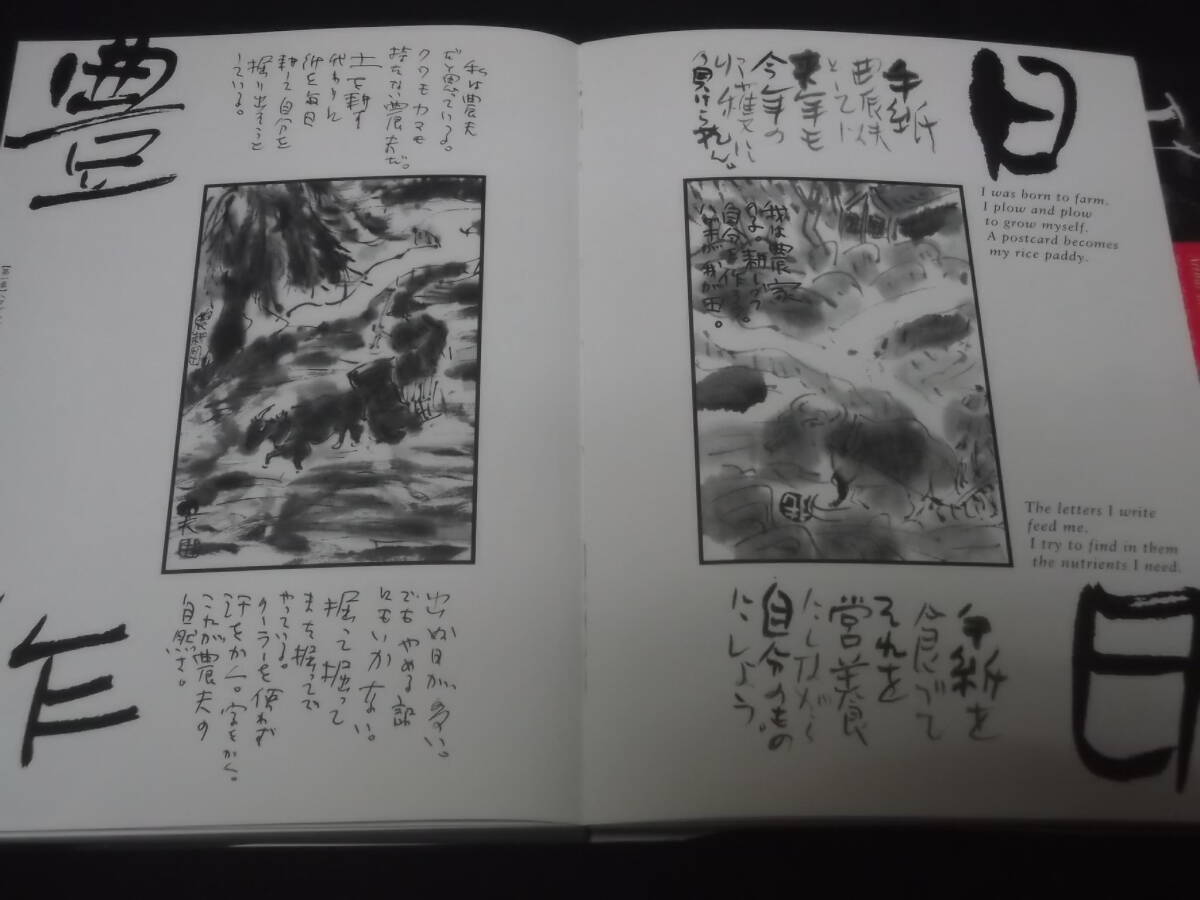 日
手紙
来年も
今年の
収穫に
負けられん。
I was born to farm.
I plow and plow
to grow myself.
A postcard becomes
my rice paddy.
我は農家
の子。耕して
自分を作る。
ハガキが我が田。
The letters I write
feed me.
I try to find in them
the nutrients I need.
日
手紙を
食べて
それを
営養
にしながら
自分のもの
にしよう。
豊
私は農夫
だと思っている。
クワもカマも
持たない農夫だ。
土を耕す
代わりに
紙を毎日
耕して自分を
掘り出そうと
している。
作
出ぬ日が多い。
でもやめる訳
にもいかない。
掘って掘って
また掘って
やっている。
クーラーを使わず
汗をかく。字をかく。
これが農夫の
自然さ。